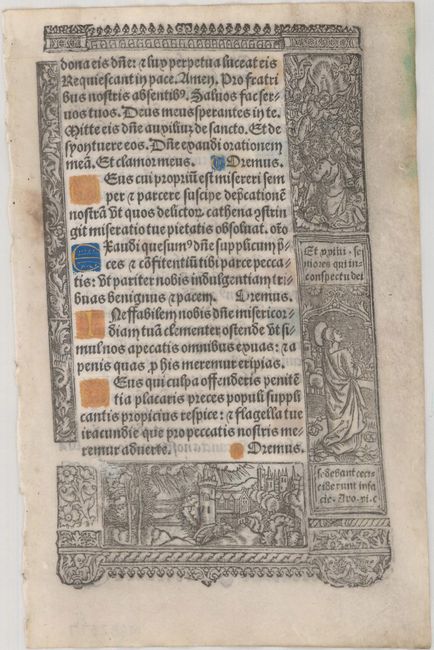 dona eis dñe: & lux perpetua luceat eis
Requiescant in pace. Amen. Pro fratri
bus nostris absentibꝰ. Saluos fac ser-
uos tuos. Deus meus sperantes in te.
Mitte eis dñe auxiliuz de sancto. Et de
syon tuere eos. Dñe exaudi orationem
meã. Et clamor meus. Oremus.
Deus cui propriũ est misereri sem
per & parcere suscipe deprecationẽ
nostrã vt quos delictor cathena ↄstrin
git miseratio tue pietatis absoluat. oro
Exaudi quesumꝰ dñe supplicum p̃-
ces & cõfitentiũ tibi parce pecca-
tis: vt pariter nobis indulgentiam tri
buas benignus & pacem. Oremus.
Ineffabilem nobis dñe misericor-
diam tuã clementer ostende vt si-
mul nos a peccatis omnibus exuas: & a
penis quas ꝓ his meremur eripias.
Deus qui culpa offenderis peniẽ
tia placaris preces populi suppli
cantis propicius respice: & flagella tue
iracundie que pro peccatis nostris me-
remur aduerte. Oremus.
Et xxiiii. se-
niores qui in
conspectu dei
sedebant ceci-
ciderunt in fa
cie. Apo. xi. c